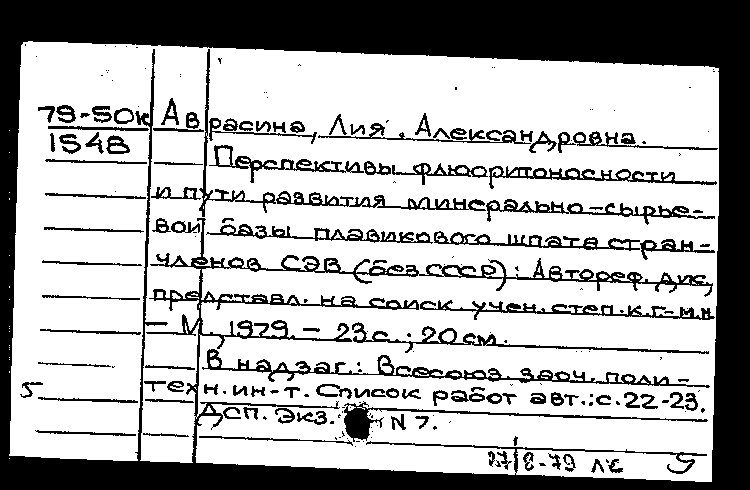 79-50к Аврасина, Лия Александровна.
1548
Перспективы флюоритоносности
и пути развития минерально-сырье-
вой базы плавикового шпата стран-
членов СЭВ (без СССР): Автореф. дис,
представл. на соиск. учен. степ. к.г.-м.н
— М., 1979. — 23 с.; 20 см.
В надзаг.: Всесоюз. заоч. поли-
5 техн. ин-т. Список работ авт.: с. 22-23.
ДСП. Экз. N 7.
27/8-79